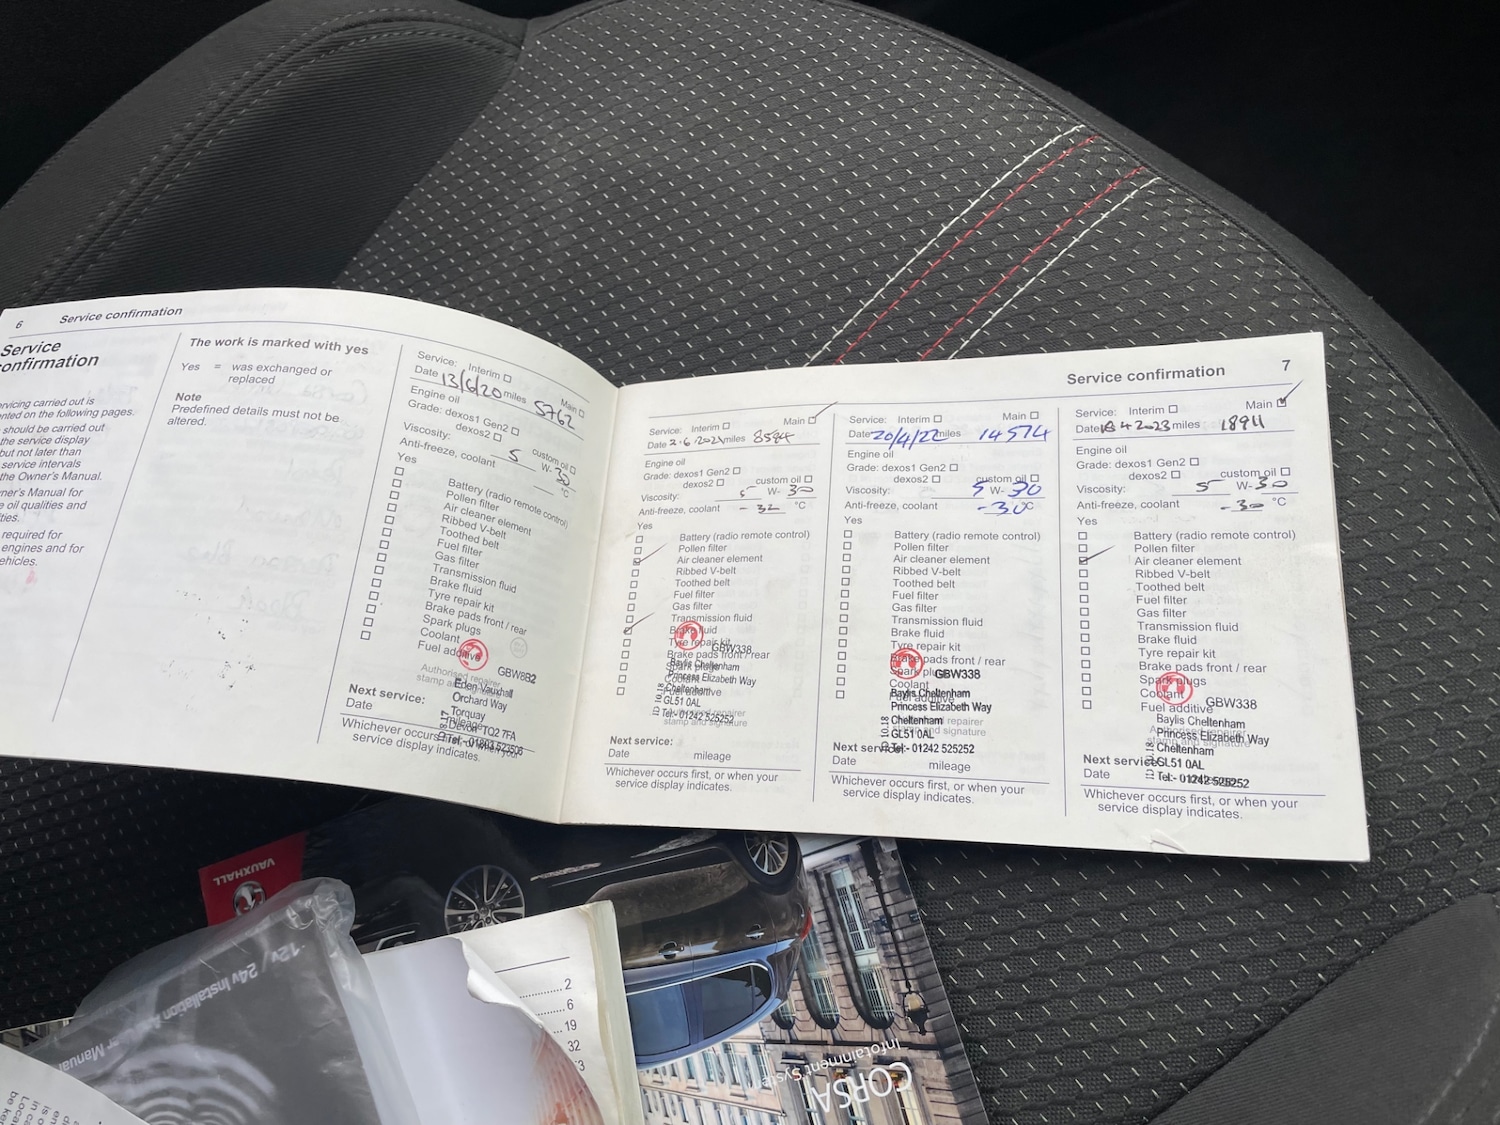 6 Service confirmation
Service
onfirmation
rvicing carried out is
nted on the following pages.
should be carried out
the service display
but not later than
service intervals
the Owner's Manual.
ner's Manual for
e oil qualities and
ties.
required for
engines and for
ehicles.
The work is marked with yes
Yes = was exchanged or
replaced
Note
Predefined details must not be
altered.
Service: Interim
Main
Date 13/6/20 miles 5762
Engine oil
Grade: dexos1 Gen2
dexos2
custom oil
Viscosity: 5 W- 30
Anti-freeze, coolant °C
Yes
Battery (radio remote control)
Pollen filter
Air cleaner element
Ribbed V-belt
Toothed belt
Fuel filter
Gas filter
Transmission fluid
Brake fluid
Tyre repair kit
Brake pads front / rear
Spark plugs
Coolant
Fuel additive
GBW8B2
Authorised repairer
stamp and signature
Eden Vauxhall
Orchard Way
Torquay
Devon TQ2 7FA
Next service:
Date mileage
Whichever occurs first, or when your
service display indicates.
Service confirmation 7
Service: Interim Main
Date 2.6.2021 miles 8584
Engine oil
Grade: dexos1 Gen2
dexos2 custom oil
Viscosity: 5 W- 30
Anti-freeze, coolant -32 °C
Yes
Battery (radio remote control)
Pollen filter
Air cleaner element
Ribbed V-belt
Toothed belt
Fuel filter
Gas filter
Transmission fluid
Brake fluid
Tyre repair kit
GBW338
Brake pads front / rear
Baylis Cheltenham
Spark plugs
Princess Elizabeth Way
Coolant
Cheltenham
Fuel additive
GL51 0AL
Authorised repairer
Tel:- 01242 525252
stamp and signature
ID 10.18
Next service:
Date mileage
Whichever occurs first, or when your
service display indicates.
Service: Interim Main
Date 20/4/22 miles 14574
Engine oil
Grade: dexos1 Gen2
dexos2 custom oil
Viscosity: 5 W- 30
Anti-freeze, coolant -30 °C
Yes
Battery (radio remote control)
Pollen filter
Air cleaner element
Ribbed V-belt
Toothed belt
Fuel filter
Gas filter
Transmission fluid
Brake fluid
Tyre repair kit
Brake pads front / rear
Spark plugs
GBW338
Coolant
Baylis Cheltenham
Fuel additive
Princess Elizabeth Way
Cheltenham
GL51 0AL
Tel:- 01242 525252
Next service:
Date mileage
Whichever occurs first, or when your
service display indicates.
Service: Interim Main
Date 4 2023 miles 18911
Engine oil
Grade: dexos1 Gen2
dexos2 custom oil
Viscosity: 5 W- 30
Anti-freeze, coolant -30 °C
Yes
Battery (radio remote control)
Pollen filter
Air cleaner element
Ribbed V-belt
Toothed belt
Fuel filter
Gas filter
Transmission fluid
Brake fluid
Tyre repair kit
Brake pads front / rear
Spark plugs
Coolant
Fuel additive
GBW338
Baylis Cheltenham
Princess Elizabeth Way
Cheltenham
GL51 0AL
Tel:- 01242 525252
Next service:
Date
Whichever occurs first, or when your
service display indicates.
VAUXHALL
12v / 24v Installation
r Manual
2
6
19
32
CORSA
Infotainment System